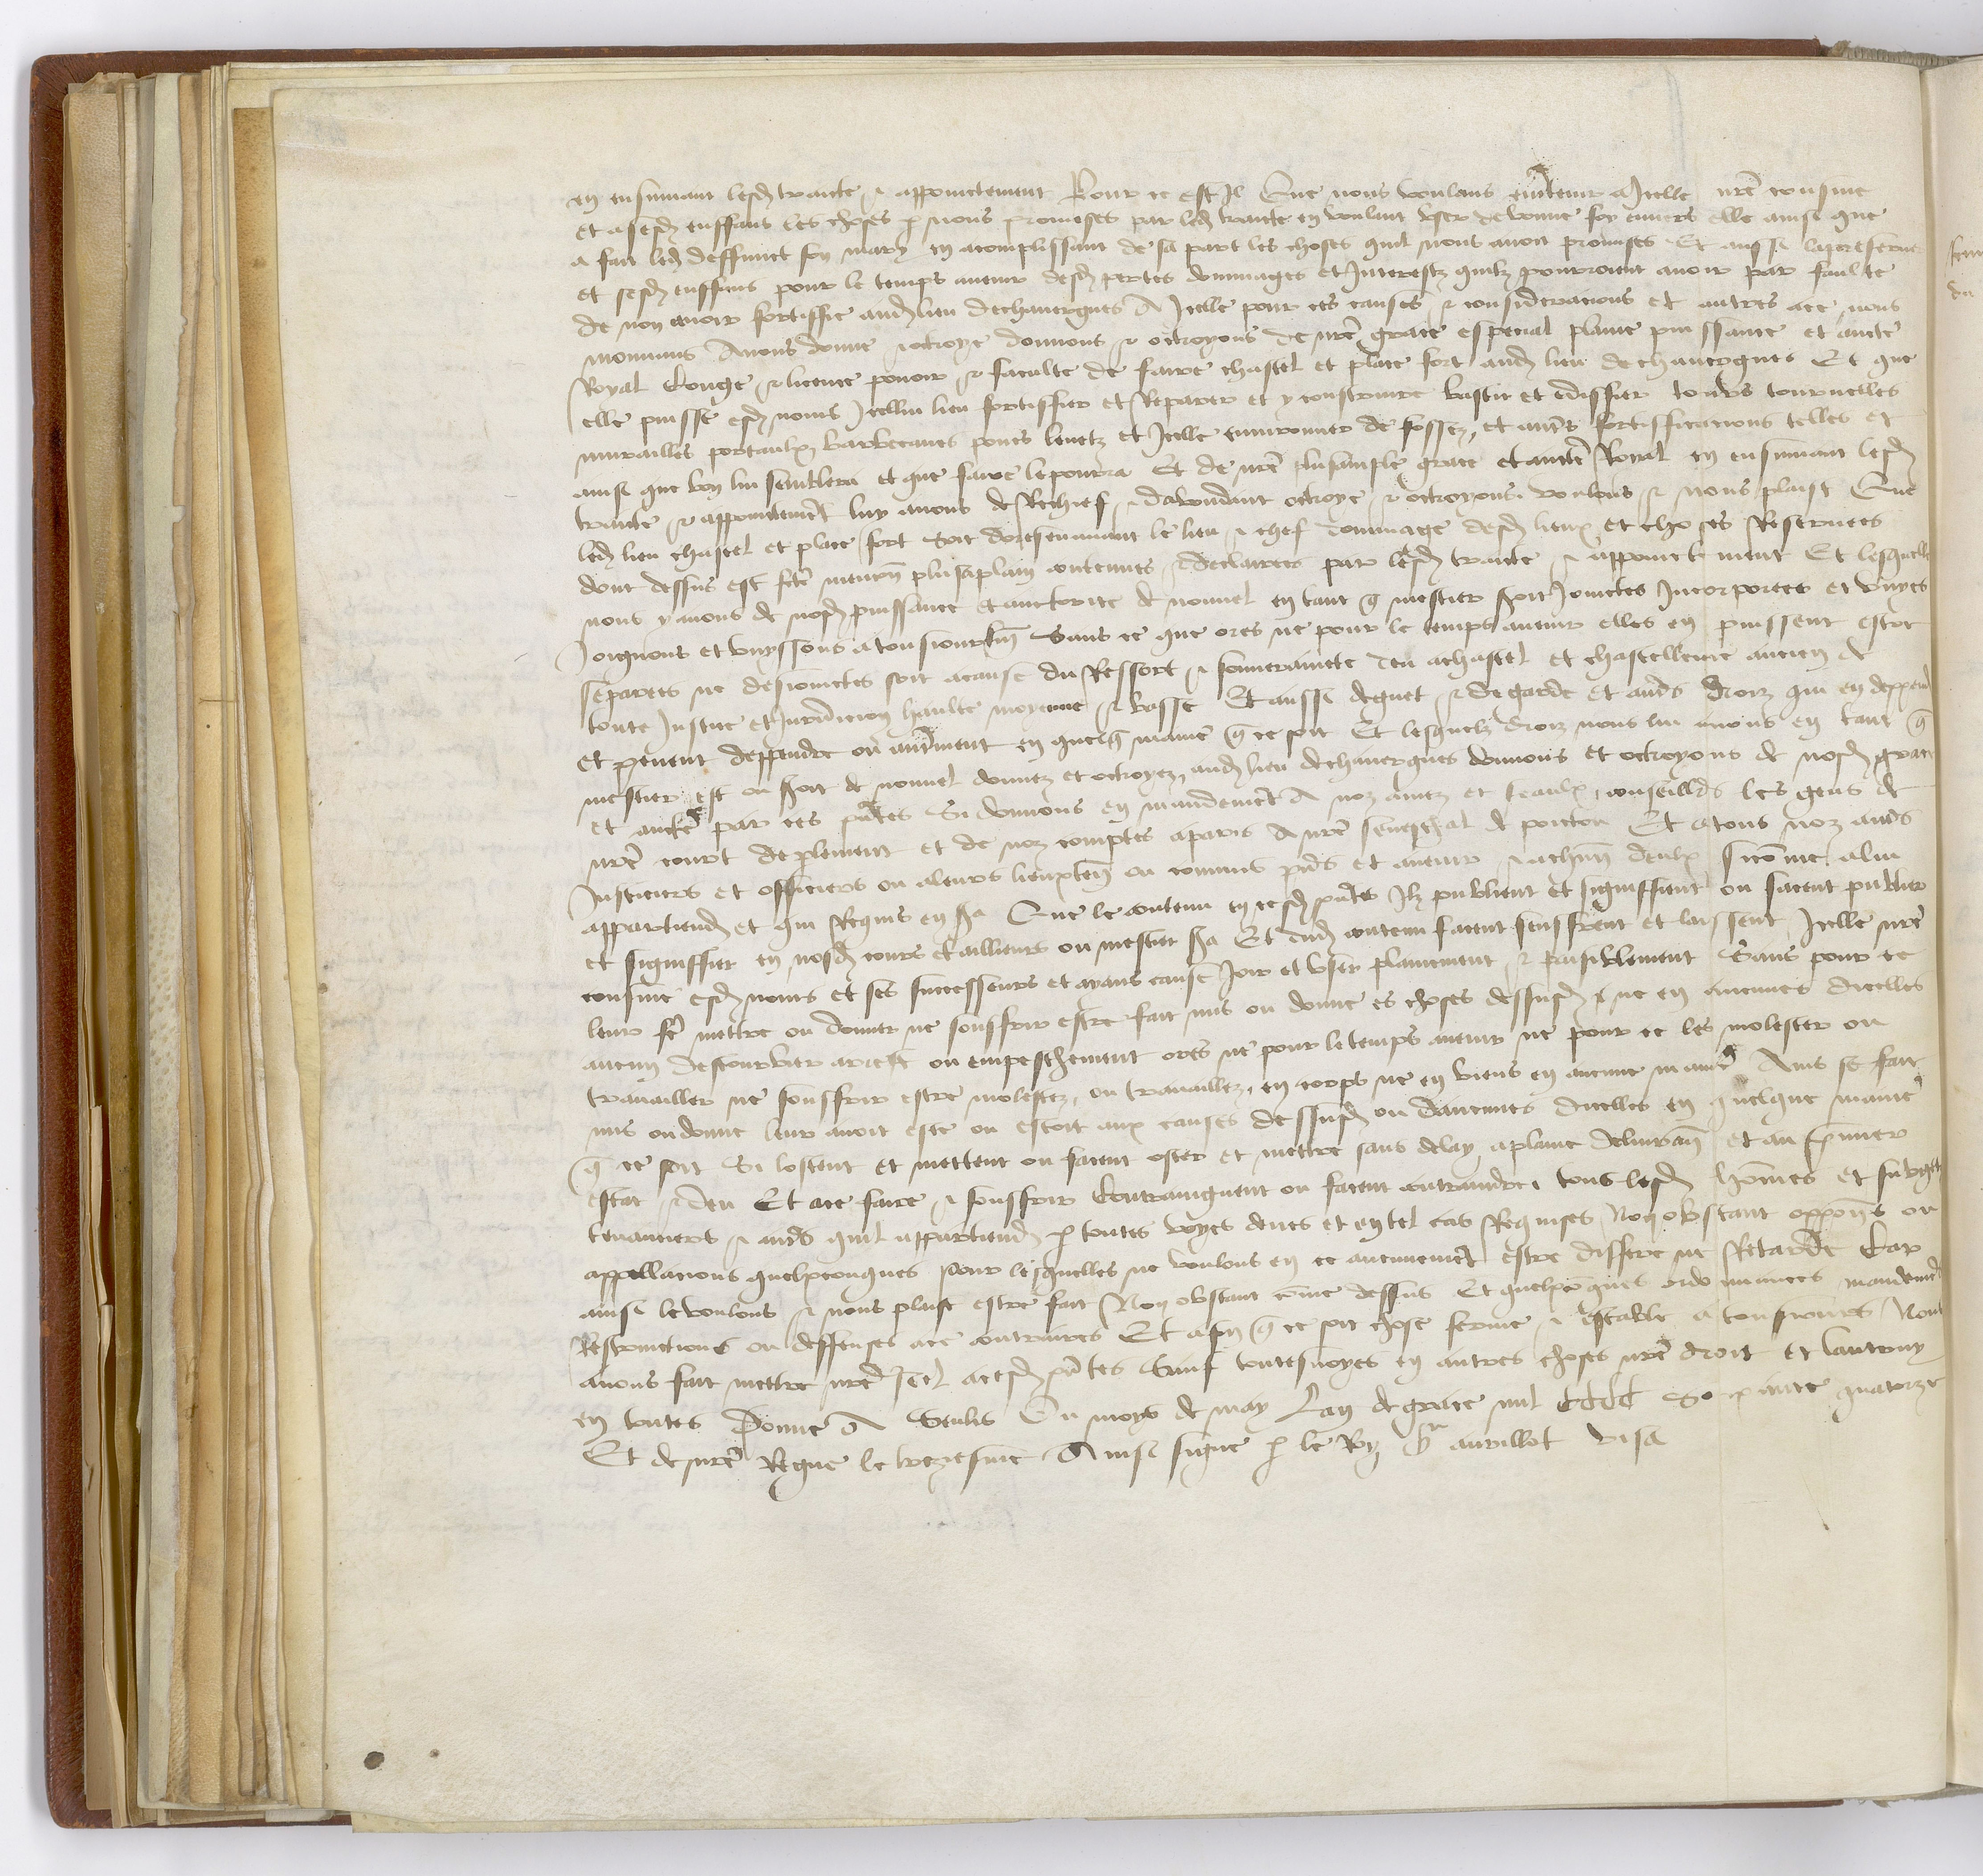 en ensuivant lesd traicte & appoinctement Pour ce est Il Que nous voulans entretenir a Icelle nrē cousine
et a sesd enffans les choses p nous promises par led traicte en voulant user de bonne foy envers elle ainsi que
a fait led deffunct son mary en acomplissant de sa part les choses quil nous avoit promises Et aussi la preserver
et sesd enffans pour le temps avenir desd pertes dommages et Interestz quilz pourroient avoir par faulte
de non avoir fortiffie aud lieu de chavergnes A Icelle pour ces causes & consideracions et autres ace nous
mouvans Avons donne & octroye donnons & octroyons de nrē grace especial plaine puissance et aucte
Royal Conge & licence povoir & faculte de faire chastel et place fort aud lieu de chaveognes Et que
elle puisse esd noms Icellui lieu fortiffier et Reparer et y construire bastir et ediffier tours tournelles
murailles portaulx barbecanes pons levetz et Icelle environner de fossez et autrs fortifficacions telles et
ainsi que bon lui semblera et que faire le pourra Et de nrē plusample grace et aucte Royal en ensuivant lesd
traicte & appoinctemēt luy avons de Rechief & dabundant octroye & octroyons voulons & nous plaist Que
led lieu chastel et place fort soit doresenavant le lieu & chef dommage desd lieux et choses Reservees
dont dessus est fcte mencion plus aplain contenues & declairees par lesd traicte & appoinctement Et lesquelle
nous y avons de nosd puissance et auctorite de nouvel en tant q mestier seroit Joinctes Incorporees et Unyes
Joignons et Unyssons a tousiourms Sans ce que ores ne pour le temps avenir elles en puissent estre
separees ne desioinctes soit acause du Ressort & souverainete den achastel et chastellenie ancien de
toute Justice et Juridicion haulte moyenne & basse Et aussi deguet & de garde et autrs droiz qui en deppend
et pevent deppendre ou autrement en quelq manie q ce soit Et lesquelz droiz nous lui avons en tant q
mestier est ou seroit de nouvel donnez et octroyez aud lieu de chavergnes donnons et octroyons de nosd grace
et aucte par ces pntes Si donnons en mandemēt A noz amez et feaulx conseillrs les gens de
nrē court de plement et de noz comptes aparis A nrē seneschal de poictou Et atous noz autrs
Justiciers et officiers ou aleurs lieuxten ou commis pns et avenir & achūn deulx sicōme alui
appartiendra et qui Requis en sera Que le contenu en cesd pntes Ilz publient et signiffient ou facent publier
et signiffier en nosd cours et ailleurs ou mestier sera Et dud contenu facent seuffrent et laissent Icelle nrē
cousine esd noms et ses successeurs et ayans cause Joir et user plainement & paisiblement Sans pour ce
leur fē mettre ou donner ne souffrir estre fait mis ou donne es choses dessusd & ne en aucunes dicelles
aucun destourbier arrest ou empeschement ores ne pour le temps avenir ne pour ce les molester ou
travailler ne souffrir estre molestez ou travaillez en corps ne en biens en aucune manie Ains se fait
mis ou donne leur avoit este ou estoit aux causes dessusd ou daucunes dicelles en quelque manie
q ce soit Si lostent et mettent ou facent oster et mettre sans delay aplaine delivrance et au premier
estat & deu Et ace faire & souffrir Contraignent ou facent contraindre tous lesd hōmes et subgetz
tenanciers & autrs quil appartiendra p toutes voyes deues et en tel cas Requises Non obstant opponēs ou
appellacions quelxconques Pour lesquelles ne voulons en ce aucunemēt estre differe ne Retarde Car
ainsi le voulons & nous plaist estre fait Non obstant cōme dessus Et quelxcōques ordonnances mandemēs
Restrinctions ou deffenses ace contraires Et afin q ce soit chose ferme & estable a tousiours Nous
avons fait mettre nrē seel acesd pntes Sauf toutesvoyes en autres choses nrē droit et lautruy
en toutes Donne A Senlis Ou moys de may Lan de grace mil CCCC Soixante quatorze
Et de nrē Regne le trezesme Ainsi signe p le Roy Br aurillot visa